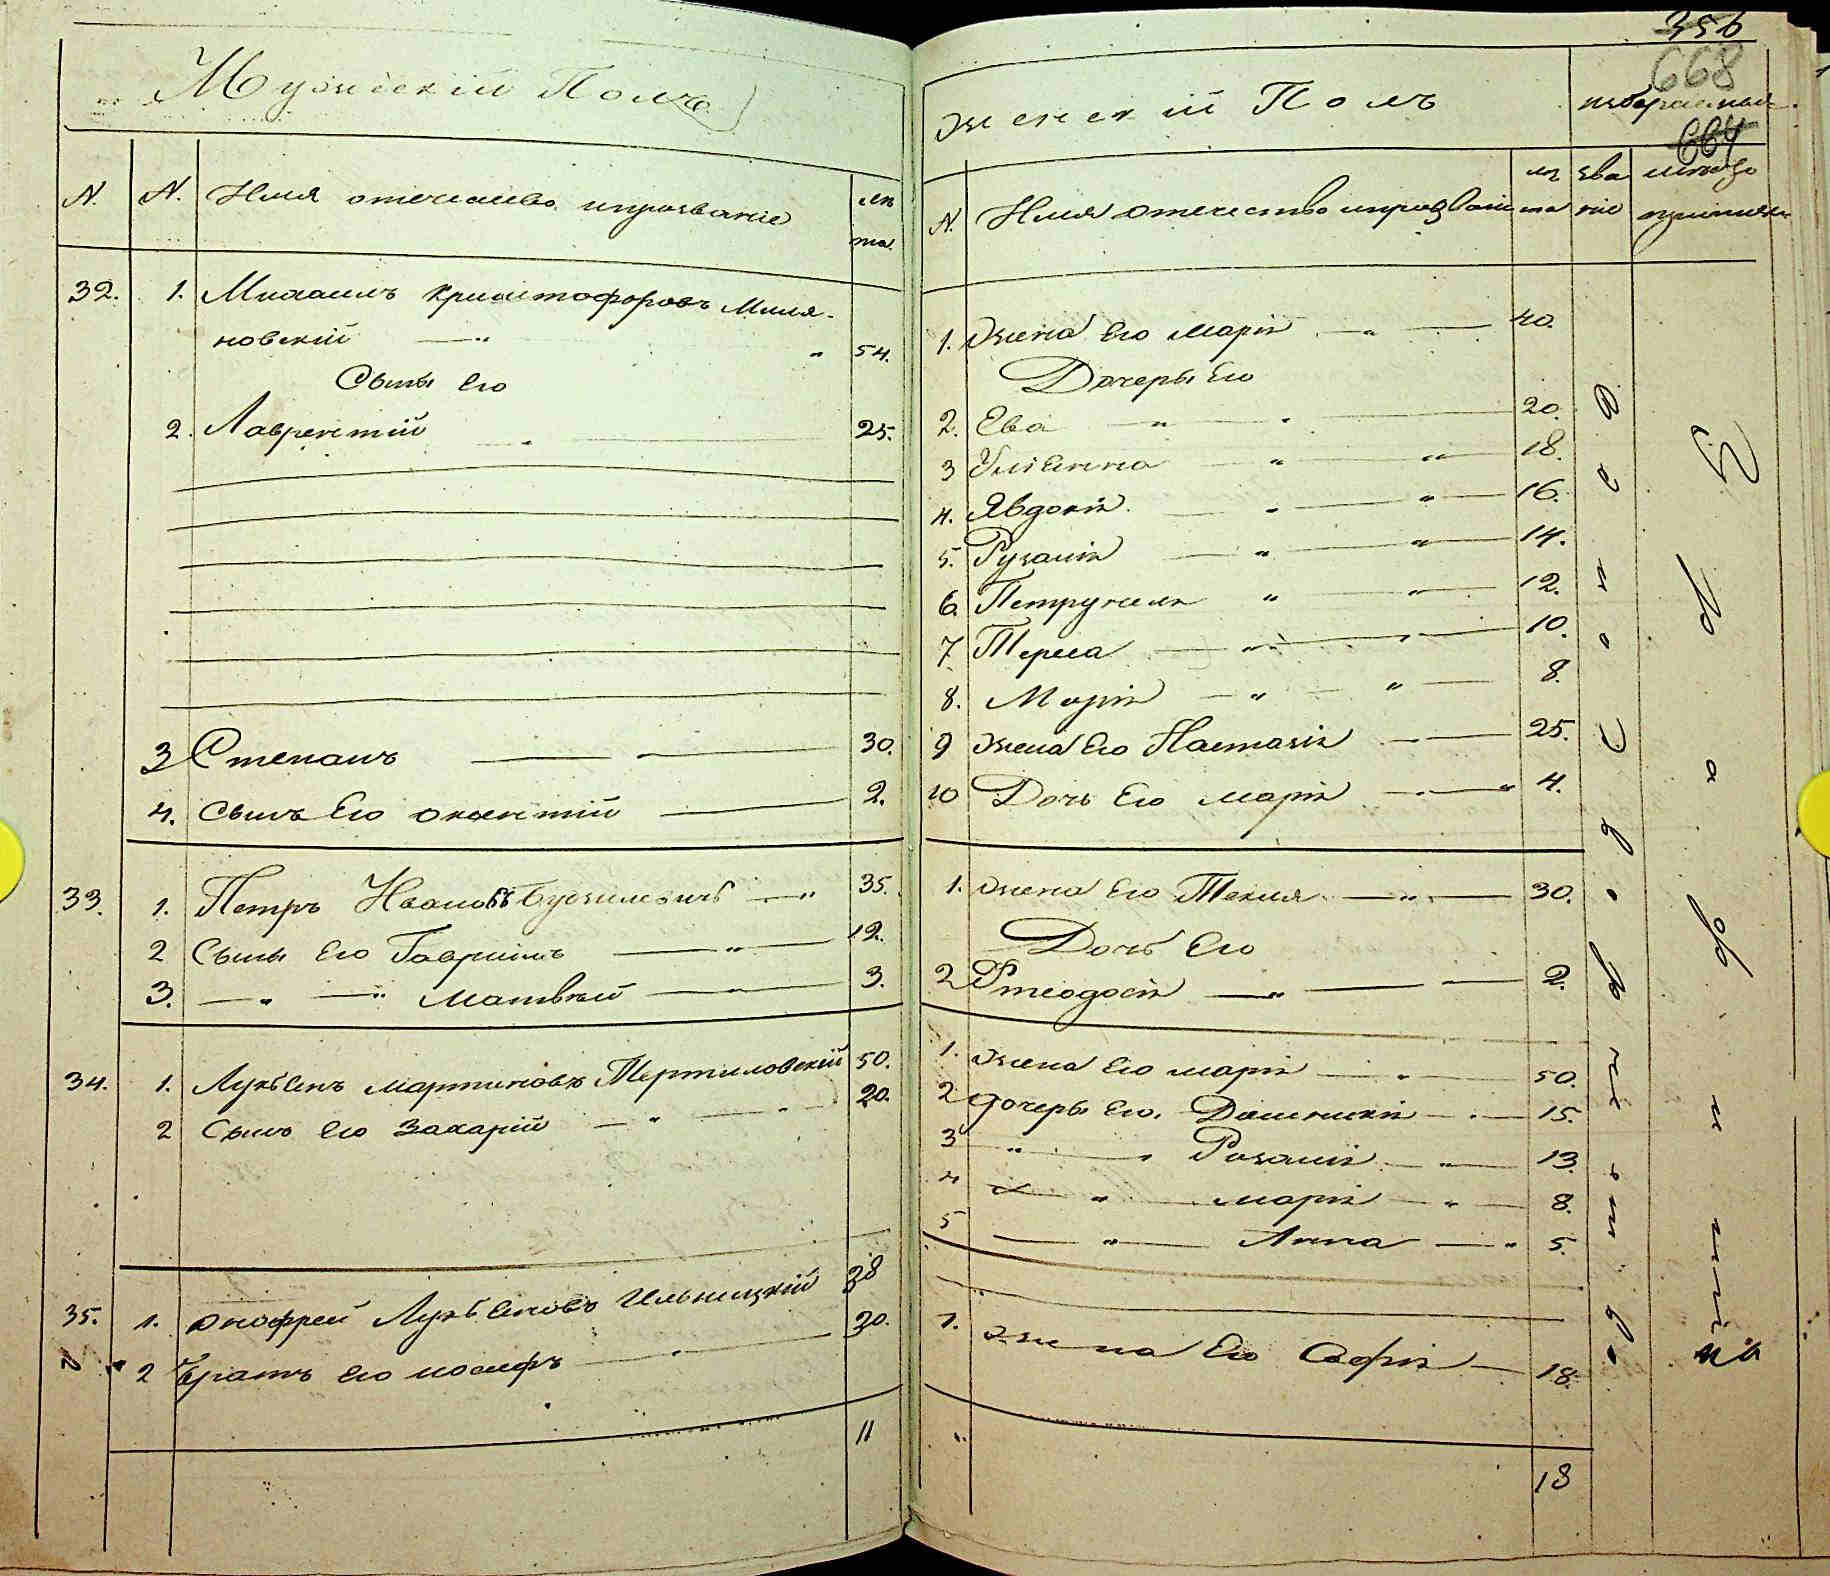 Мужескій Полъ
N. N. Имя отечество ипрозваніе лета
32. 1. Михаилъ Криштофоровъ Миля-
новскій 54.
Сыны Его
2. Лаврентій 25.
3 Степанъ 30.
4. Сынъ Его 2.
33. 1. Петръ Ивановъ 35.
2 Сыны Его Гавріилъ 12.
3. Матвѣй 3.
34. 1. Лукьянъ Мартиновъ 50.
2 Сынъ Его Захарій 20.
35. 1. Онофрей Лукьяновъ Ильницкій 38
2 Братъ Его Иосифъ 20.
11
356
668
664
Женскій Полъ
N. Имя отечество ипрозваніе лета званіе
1. Жена Его Марія 40.
Дочеры Его
2. Ева 20.
3 Уліянна 18.
4. Явдокія 16.
5. Рузалія 14.
6. Петрунеля 12.
7 Тереса 10.
8. Марія 8.
9 Жена Его Настазія 25.
10 Дочь Его Марія 4.
1. Жена Его Текля 30.
Дочь Его
2 Фтеодосія 2.
1. Жена Его Марія 50.
2 Дочеры Его. 15.
3 Розалія 13.
4 Марія 8.
5 Анна 5.
1. Жена Его Софія 18.
18